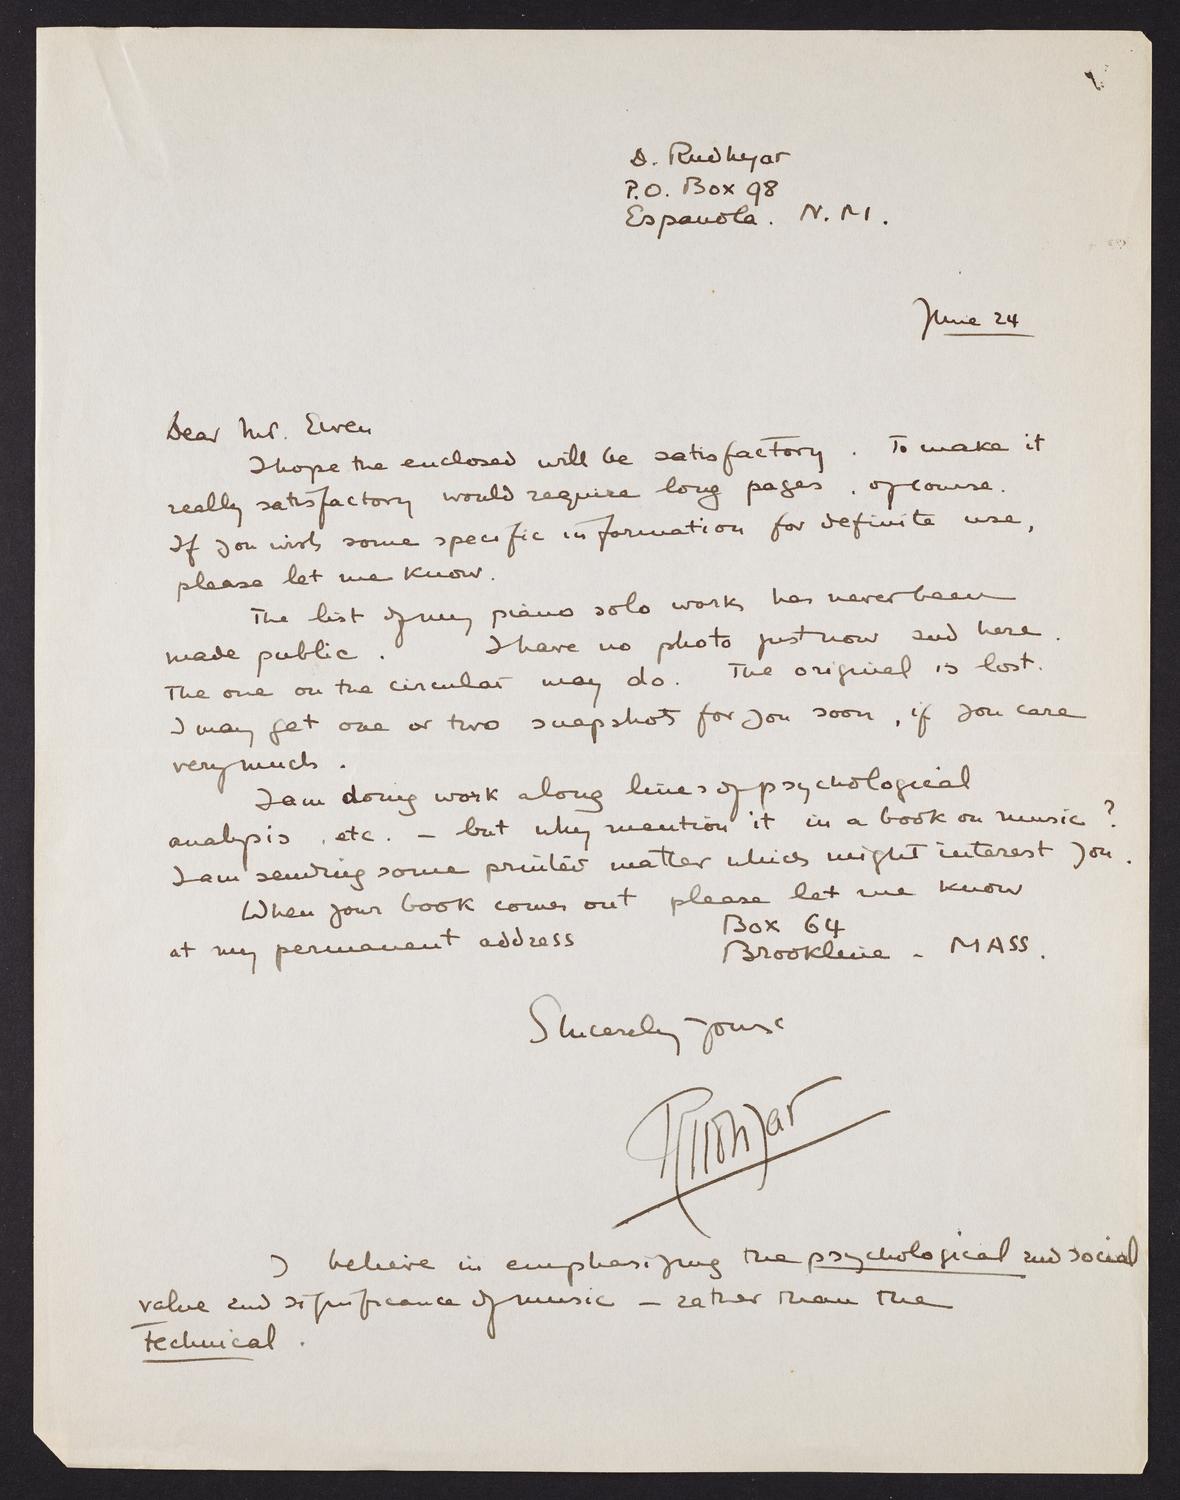 D. Rudhyar
P.O. Box 98
Espanola. N. M.
June 24
Dear Mr. Ewen
I hope the enclosed will be satisfactory. To make it
really satisfactory would require long pages, of course.
If you wish some specific information for definite use,
please let me know.
The list of my piano solo works has never been
made public. I have no photo just now and here.
The one on the circular may do. The original is lost.
I may get one or two snapshots for you soon, if you care
very much.
I am doing work along lines of psychological
analysis, etc. - but why mention it in a book on music?
I am sending some printed matter which might interest you.
When your book comes out please let me know
at my permanent address Box 64
Brookline - MASS.
Sincerely yours
Rudhyar
I believe in emphasizing the psychological and social
value and significance of music - rather than the
technical.